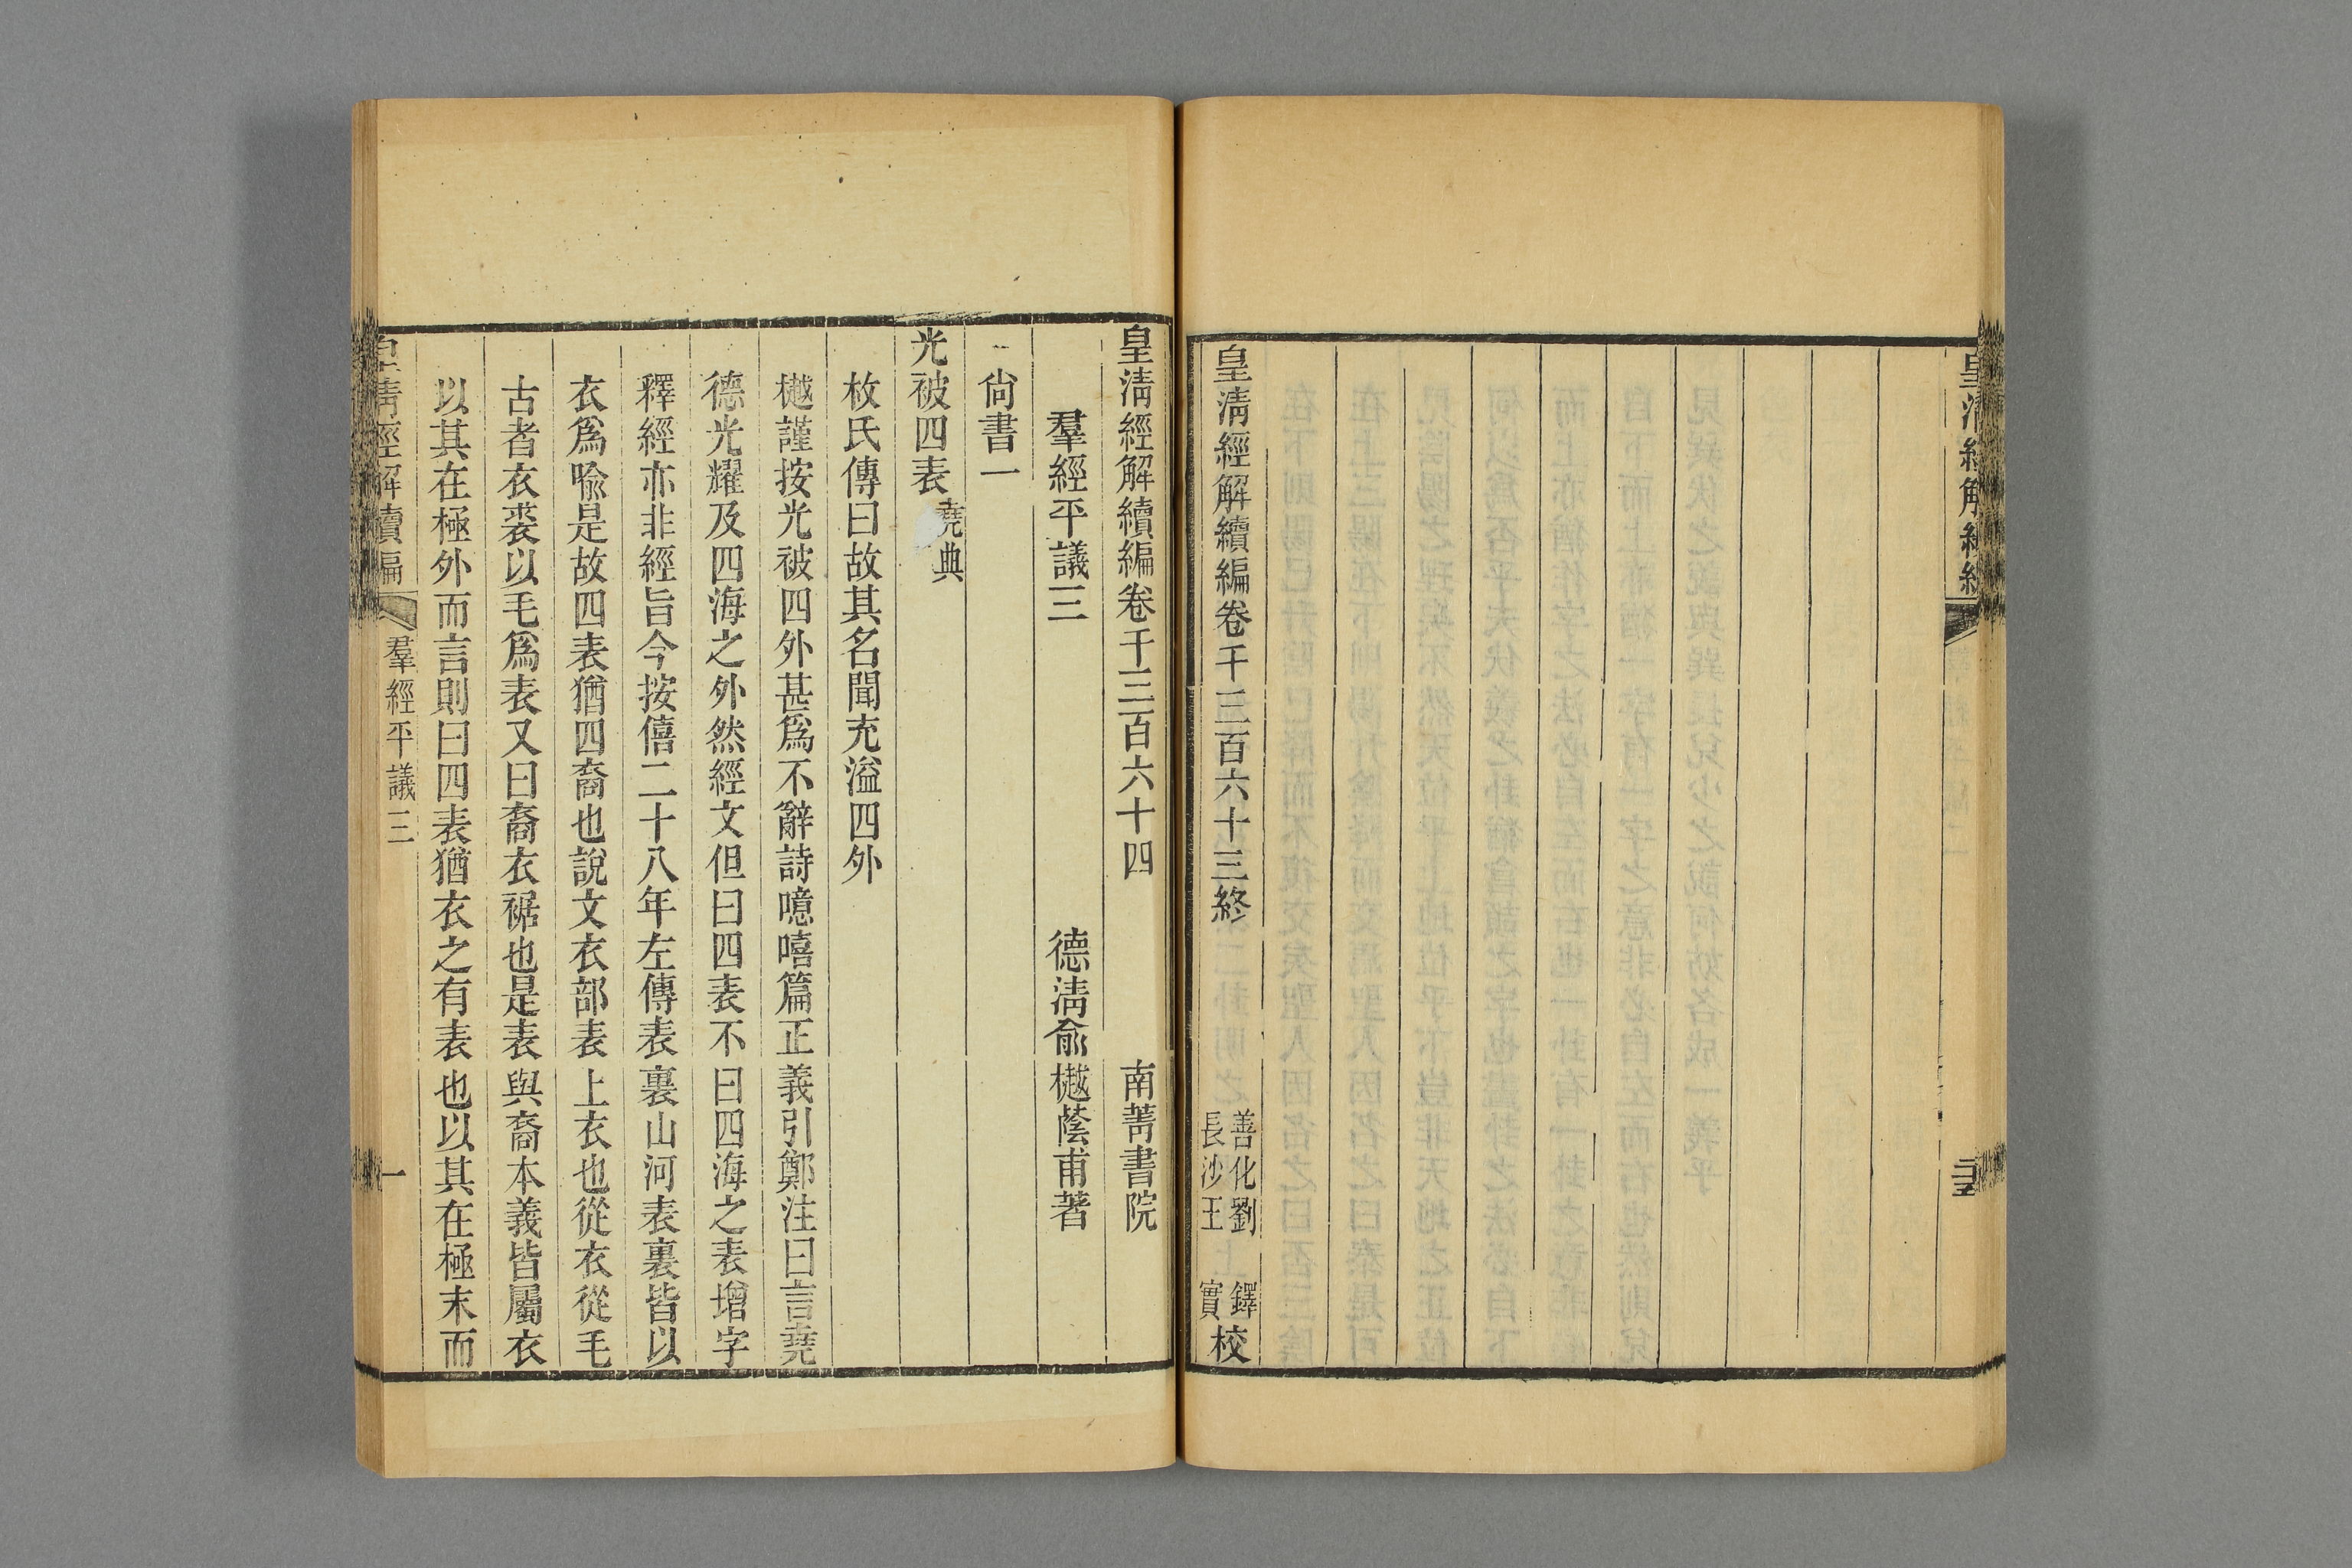 皇清經解續編卷千三百六十三終
善化劉 鐸
長沙王 實
校
皇清經解續編卷千三百六十四 南菁書院
羣經平議三 德清俞樾蔭甫著
尚書一
光被四表堯典
枚氏傳曰故其名聞充溢四外
樾謹按光被四外甚爲不辭詩噫嘻篇正義引鄭注曰言堯
德光耀及四海之外然經文但曰四表不曰四海之表增字
釋經亦非經旨今按僖二十八年左傳表裏山河表裏皆以
衣爲喩是故四表猶四裔也說文衣部表上衣也從衣從毛
古者衣裘以毛爲表又曰裔衣裾也是表與裔本義皆屬衣
以其在極外而言則曰四表猶衣之有表也以其在極末而
皇清經解續編 羣經平議三 一